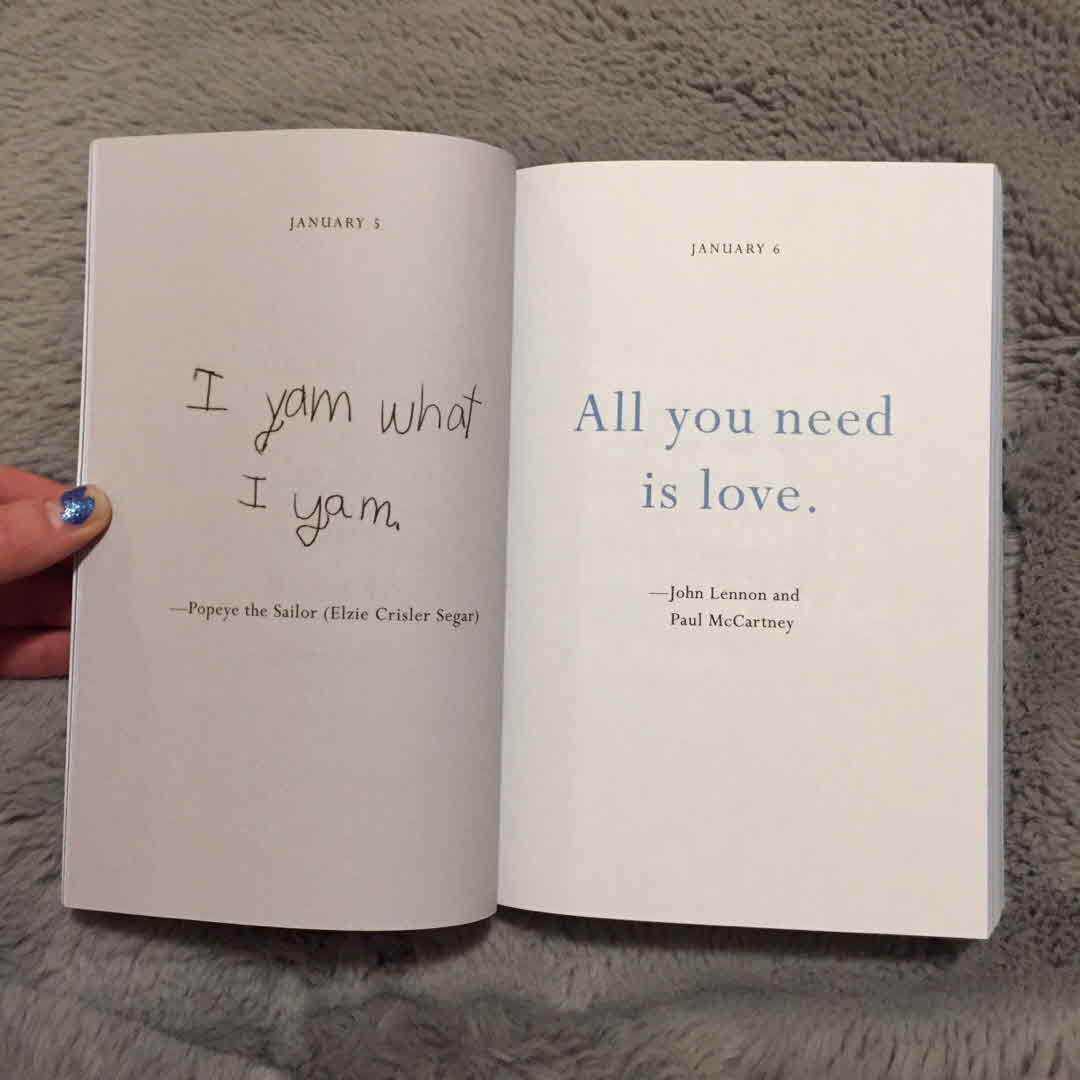 JANUARY 5
I yam what
I yam.
—Popeye the Sailor (Elzie Crisler Segar)
JANUARY 6
All you need
is love.
—John Lennon and
Paul McCartney